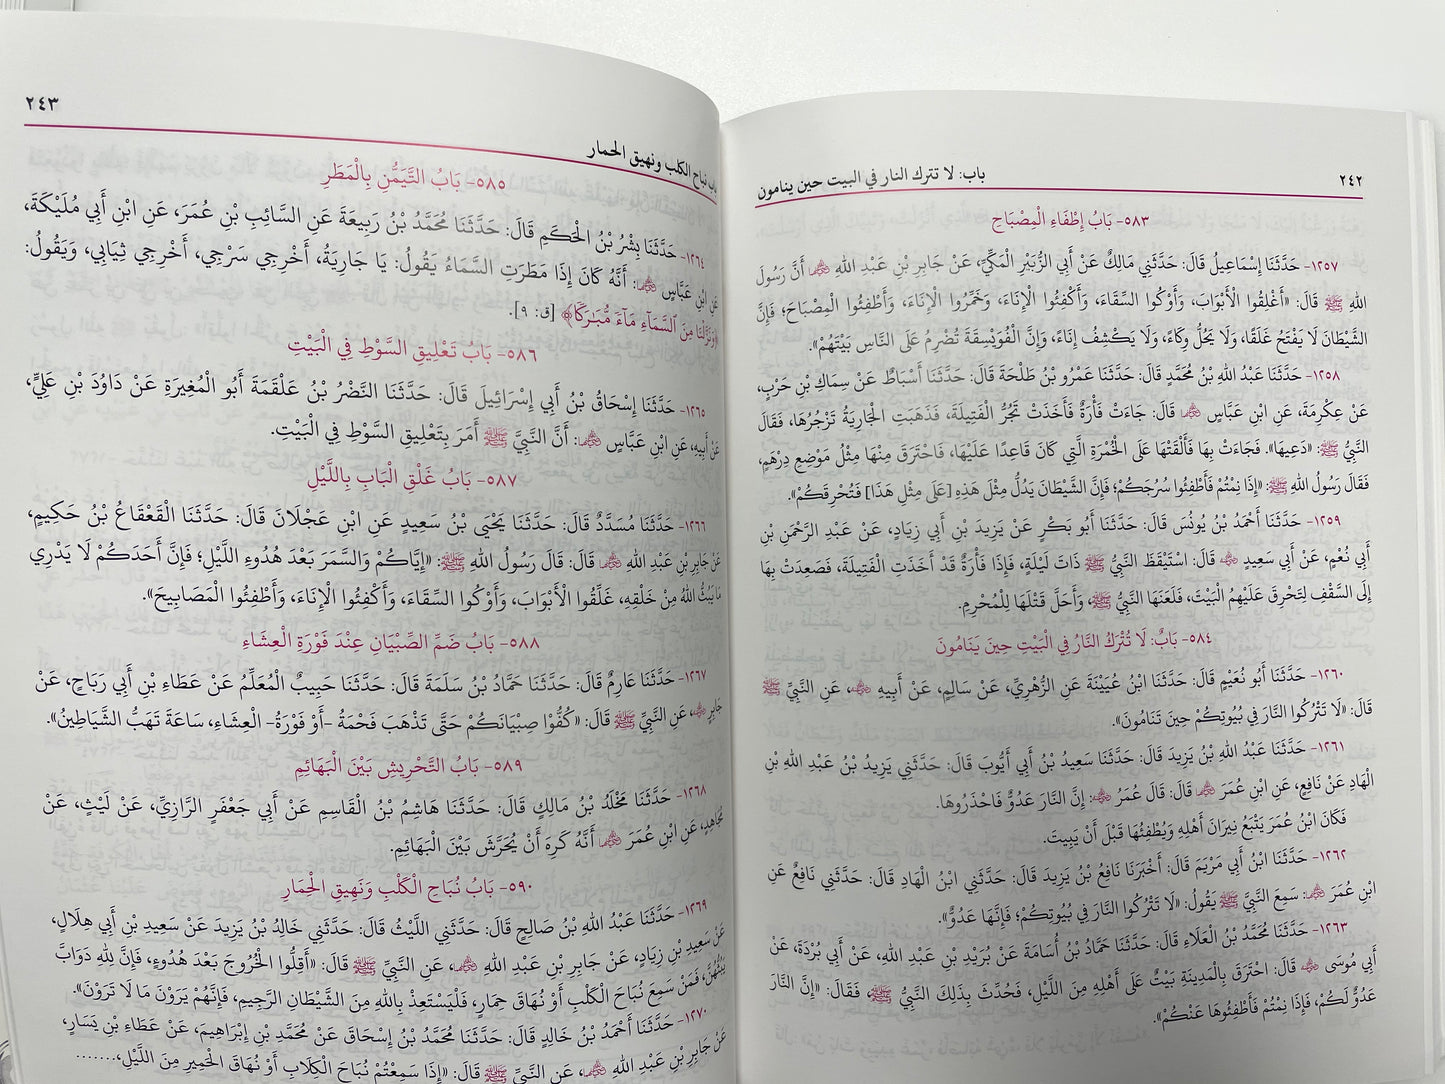 ٢٤٢
باب: لا تترك النار في البيت حين ينامون
٥٨٣- بَابُ إِطْفَاءِ الْمِصْبَاحِ
١٢٥٧- حَدَّثَنَا إِسْمَاعِيلُ قَالَ: حَدَّثَنِي مَالِكٌ عَنْ أَبِي الزُّبَيْرِ الْمَكِّيِّ، عَنْ جَابِرِ بْنِ عَبْدِ اللهِ ﵁ أَنَّ رَسُولَ
اللهِ ﷺ قَالَ: «أَغْلِقُوا الْأَبْوَابَ، وَأَوْكُوا السِّقَاءَ، وَأَكْفِئُوا الْإِنَاءَ، وَخَمِّرُوا الْإِنَاءَ، وَأَطْفِئُوا الْمِصْبَاحَ؛ فَإِنَّ
الشَّيْطَانَ لَا يَفْتَحُ غَلَقًا، وَلَا يَحُلُّ وِكَاءً، وَلَا يَكْشِفُ إِنَاءً، وَإِنَّ الْفُوَيْسِقَةَ تُضْرِمُ عَلَى النَّاسِ بَيْتَهُمْ».
١٢٥٨- حَدَّثَنَا عَبْدُ اللهِ بْنُ مُحَمَّدٍ قَالَ: حَدَّثَنَا عَمْرُو بْنُ طَلْحَةَ قَالَ: حَدَّثَنَا أَسْبَاطٌ عَنْ سِمَاكِ بْنِ حَرْبٍ،
عَنْ عِكْرِمَةَ، عَنِ ابْنِ عَبَّاسٍ ﵄ قَالَ: جَاءَتْ فَأْرَةٌ فَأَخَذَتْ تَجُرُّ الْفَتِيلَةَ، فَذَهَبَتِ الْجَارِيَةُ تَزْجُرُهَا، فَقَالَ
النَّبِيُّ ﷺ: «دَعِيهَا». فَجَاءَتْ بِهَا فَأَلْقَتْهَا عَلَى الْخُمْرَةِ الَّتِي كَانَ قَاعِدًا عَلَيْهَا، فَاحْتَرَقَ مِنْهَا مِثْلُ مَوْضِعِ دِرْهَمٍ،
فَقَالَ رَسُولُ اللهِ ﷺ: «إِذَا نِمْتُمْ فَأَطْفِئُوا سُرُجَكُمْ؛ فَإِنَّ الشَّيْطَانَ يَدُلُّ مِثْلَ هَذِهِ [عَلَى مِثْلِ هَذَا] فَتُحْرِقَكُمْ».
١٢٥٩- حَدَّثَنَا أَحْمَدُ بْنُ يُونُسَ قَالَ: حَدَّثَنَا أَبُو بَكْرٍ عَنْ يَزِيدَ بْنِ أَبِي زِيَادٍ، عَنْ عَبْدِ الرَّحْمَنِ بْنِ
أَبِي نُعْمٍ، عَنْ أَبِي سَعِيدٍ ﵁ قَالَ: اسْتَيْقَظَ النَّبِيُّ ﷺ ذَاتَ لَيْلَةٍ، فَإِذَا فَأْرَةٌ قَدْ أَخَذَتِ الْفَتِيلَةَ، فَصَعِدَتْ بِهَا
إِلَى السَّقْفِ لِتَحْرِقَ عَلَيْهِمُ الْبَيْتَ، فَلَعَنَهَا النَّبِيُّ ﷺ، وَأَحَلَّ قَتْلَهَا لِلْمُحْرِمِ.
٥٨٤- بَابٌ: لَا تُتْرَكُ النَّارُ فِي الْبَيْتِ حِينَ يَنَامُونَ
١٢٦٠- حَدَّثَنَا أَبُو نُعَيْمٍ قَالَ: حَدَّثَنَا ابْنُ عُيَيْنَةَ عَنِ الزُّهْرِيِّ، عَنْ سَالِمٍ، عَنْ أَبِيهِ ﵁، عَنِ النَّبِيِّ ﷺ
قَالَ: «لَا تَتْرُكُوا النَّارَ فِي بُيُوتِكُمْ حِينَ تَنَامُونَ».
١٢٦١- حَدَّثَنَا عَبْدُ اللهِ بْنُ يَزِيدَ قَالَ: حَدَّثَنَا سَعِيدُ بْنُ أَبِي أَيُّوبَ قَالَ: حَدَّثَنِي يَزِيدُ بْنُ عَبْدِ اللهِ بْنِ
الْهَادِ عَنْ نَافِعٍ، عَنِ ابْنِ عُمَرَ ﵄ قَالَ: قَالَ عُمَرُ ﵁: إِنَّ النَّارَ عَدُوٌّ فَاحْذَرُوهَا.
فَكَانَ ابْنُ عُمَرَ يَتْبَعُ نِيرَانَ أَهْلِهِ وَيُطْفِئُهَا قَبْلَ أَنْ يَبِيتَ.
١٢٦٢- حَدَّثَنَا ابْنُ أَبِي مَرْيَمَ قَالَ: أَخْبَرَنَا نَافِعُ بْنُ يَزِيدَ قَالَ: حَدَّثَنِي ابْنُ الْهَادِ قَالَ: حَدَّثَنِي نَافِعٌ عَنِ
ابْنِ عُمَرَ ﵄: سَمِعَ النَّبِيَّ ﷺ يَقُولُ: «لَا تَتْرُكُوا النَّارَ فِي بُيُوتِكُمْ؛ فَإِنَّهَا عَدُوٌّ».
١٢٦٣- حَدَّثَنَا مُحَمَّدُ بْنُ الْعَلَاءِ قَالَ: حَدَّثَنَا حَمَّادُ بْنُ أُسَامَةَ عَنْ بُرَيْدِ بْنِ عَبْدِ اللهِ، عَنْ أَبِي بُرْدَةَ، عَنْ
أَبِي مُوسَى ﵁ قَالَ: احْتَرَقَ بِالْمَدِينَةِ بَيْتٌ عَلَى أَهْلِهِ مِنَ اللَّيْلِ، فَحُدِّثَ بِذَلِكَ النَّبِيُّ ﷺ، فَقَالَ: «إِنَّ النَّارَ
عَدُوٌّ لَكُمْ، فَإِذَا نِمْتُمْ فَأَطْفِئُوهَا عَنْكُمْ».
باب نباح الكلب ونهيق الحمار
٢٤٣
٥٨٥- بَابُ التَّيَمُّنِ بِالْمَطَرِ
١٢٦٤- حَدَّثَنَا بِشْرُ بْنُ الْحَكَمِ قَالَ: حَدَّثَنَا مُحَمَّدُ بْنُ رَبِيعَةَ عَنِ السَّائِبِ بْنِ عُمَرَ، عَنِ ابْنِ أَبِي مُلَيْكَةَ،
عَنِ ابْنِ عَبَّاسٍ ﵄: أَنَّهُ كَانَ إِذَا مَطَرَتِ السَّمَاءُ يَقُولُ: يَا جَارِيَةُ، أَخْرِجِي سَرْجِي، أَخْرِجِي ثِيَابِي، وَيَقُولُ:
﴿وَنَزَّلْنَا مِنَ ٱلسَّمَآءِ مَآءً مُّبَٰرَكًا﴾ [ق: ٩].
٥٨٦- بَابُ تَعْلِيقِ السَّوْطِ فِي الْبَيْتِ
١٢٦٥- حَدَّثَنَا إِسْحَاقُ بْنُ أَبِي إِسْرَائِيلَ قَالَ: حَدَّثَنَا النَّضْرُ بْنُ عَلْقَمَةَ أَبُو الْمُغِيرَةِ عَنْ دَاوُدَ بْنِ عَلِيٍّ،
عَنْ أَبِيهِ، عَنِ ابْنِ عَبَّاسٍ ﵄: أَنَّ النَّبِيَّ ﷺ أَمَرَ بِتَعْلِيقِ السَّوْطِ فِي الْبَيْتِ.
٥٨٧- بَابُ غَلْقِ الْبَابِ بِاللَّيْلِ
١٢٦٦- حَدَّثَنَا مُسَدَّدٌ قَالَ: حَدَّثَنَا يَحْيَى بْنُ سَعِيدٍ عَنِ ابْنِ عَجْلَانَ قَالَ: حَدَّثَنَا الْقَعْقَاعُ بْنُ حَكِيمٍ،
عَنْ جَابِرِ بْنِ عَبْدِ اللهِ ﵁ قَالَ: قَالَ رَسُولُ اللهِ ﷺ: «إِيَّاكُمْ وَالسَّمَرَ بَعْدَ هُدُوءِ اللَّيْلِ؛ فَإِنَّ أَحَدَكُمْ لَا يَدْرِي
مَا يَبُثُّ اللهُ مِنْ خَلْقِهِ، غَلِّقُوا الْأَبْوَابَ، وَأَوْكُوا السِّقَاءَ، وَأَكْفِئُوا الْإِنَاءَ، وَأَطْفِئُوا الْمَصَابِيحَ».
٥٨٨- بَابُ ضَمِّ الصِّبْيَانِ عِنْدَ فَوْرَةِ الْعِشَاءِ
١٢٦٧- حَدَّثَنَا عَارِمٌ قَالَ: حَدَّثَنَا حَمَّادُ بْنُ سَلَمَةَ قَالَ: حَدَّثَنَا حَبِيبٌ الْمُعَلِّمُ عَنْ عَطَاءِ بْنِ أَبِي رَبَاحٍ، عَنْ
جَابِرٍ ﵁، عَنِ النَّبِيِّ ﷺ قَالَ: «كُفُّوا صِبْيَانَكُمْ حَتَّى تَذْهَبَ فَحْمَةُ -أَوْ فَوْرَةُ- الْعِشَاءِ، سَاعَةَ تَهَبُّ الشَّيَاطِينُ».
٥٨٩- بَابُ التَّحْرِيشِ بَيْنَ الْبَهَائِمِ
١٢٦٨- حَدَّثَنَا مَخْلَدُ بْنُ مَالِكٍ قَالَ: حَدَّثَنَا هَاشِمُ بْنُ الْقَاسِمِ عَنْ أَبِي جَعْفَرٍ الرَّازِيِّ، عَنْ لَيْثٍ، عَنْ
مُجَاهِدٍ، عَنِ ابْنِ عُمَرَ ﵄ أَنَّهُ كَرِهَ أَنْ يُحَرَّشَ بَيْنَ الْبَهَائِمِ.
٥٩٠- بَابُ نُبَاحِ الْكَلْبِ وَنَهِيقِ الْحِمَارِ
١٢٦٩- حَدَّثَنَا عَبْدُ اللهِ بْنُ صَالِحٍ قَالَ: حَدَّثَنِي اللَّيْثُ قَالَ: حَدَّثَنِي خَالِدُ بْنُ يَزِيدَ عَنْ سَعِيدِ بْنِ أَبِي هِلَالٍ،
عَنْ سَعِيدِ بْنِ زِيَادٍ، عَنْ جَابِرِ بْنِ عَبْدِ اللهِ ﵁، عَنِ النَّبِيِّ ﷺ قَالَ: «أَقِلُّوا الْخُرُوجَ بَعْدَ هُدُوءٍ، فَإِنَّ لِلهِ دَوَابَّ
يَبُثُّهُنَّ، فَمَنْ سَمِعَ نُبَاحَ الْكَلْبِ أَوْ نُهَاقَ حِمَارٍ، فَلْيَسْتَعِذْ بِاللهِ مِنَ الشَّيْطَانِ الرَّجِيمِ، فَإِنَّهُمْ يَرَوْنَ مَا لَا تَرَوْنَ».
١٢٧٠- حَدَّثَنَا أَحْمَدُ بْنُ خَالِدٍ قَالَ: حَدَّثَنَا مُحَمَّدُ بْنُ إِسْحَاقَ عَنْ مُحَمَّدِ بْنِ إِبْرَاهِيمَ، عَنْ عَطَاءِ بْنِ يَسَارٍ،
عَنْ جَابِرِ بْنِ عَبْدِ اللهِ ﵁، عَنِ النَّبِيِّ ﷺ قَالَ: «إِذَا سَمِعْتُمْ نُبَاحَ الْكِلَابِ أَوْ نُهَاقَ الْحَمِيرِ مِنَ اللَّيْلِ،.......